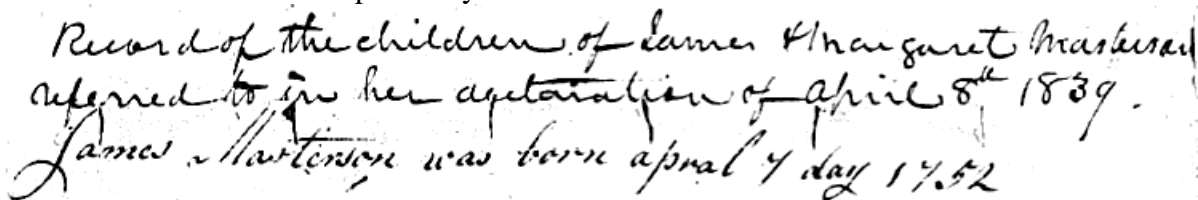 Record of the children of James & Margaret Masterson
referred to in her declaration of April 8th 1839.
James Masterson was born apral 7 day 1752